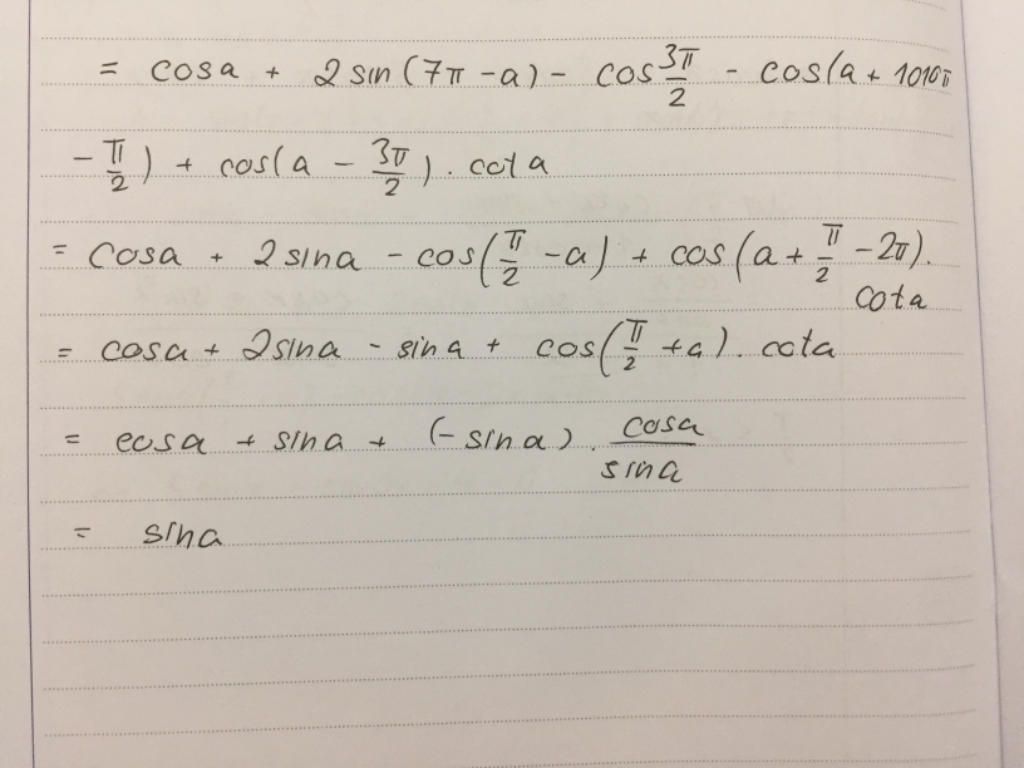 = cosa + 2 sin (7π - a) - cos 3π/2 - cos(a + 1010π
- π/2) + cos(a - 3π/2) . cot a
= cosa + 2 sina - cos(π/2 - a) + cos(a + π/2 - 2π).
cota
= cosa + 2sina - sina + cos(π/2 + a). cota
= cosa + sina + (- sina) . cosa/sina
= sina